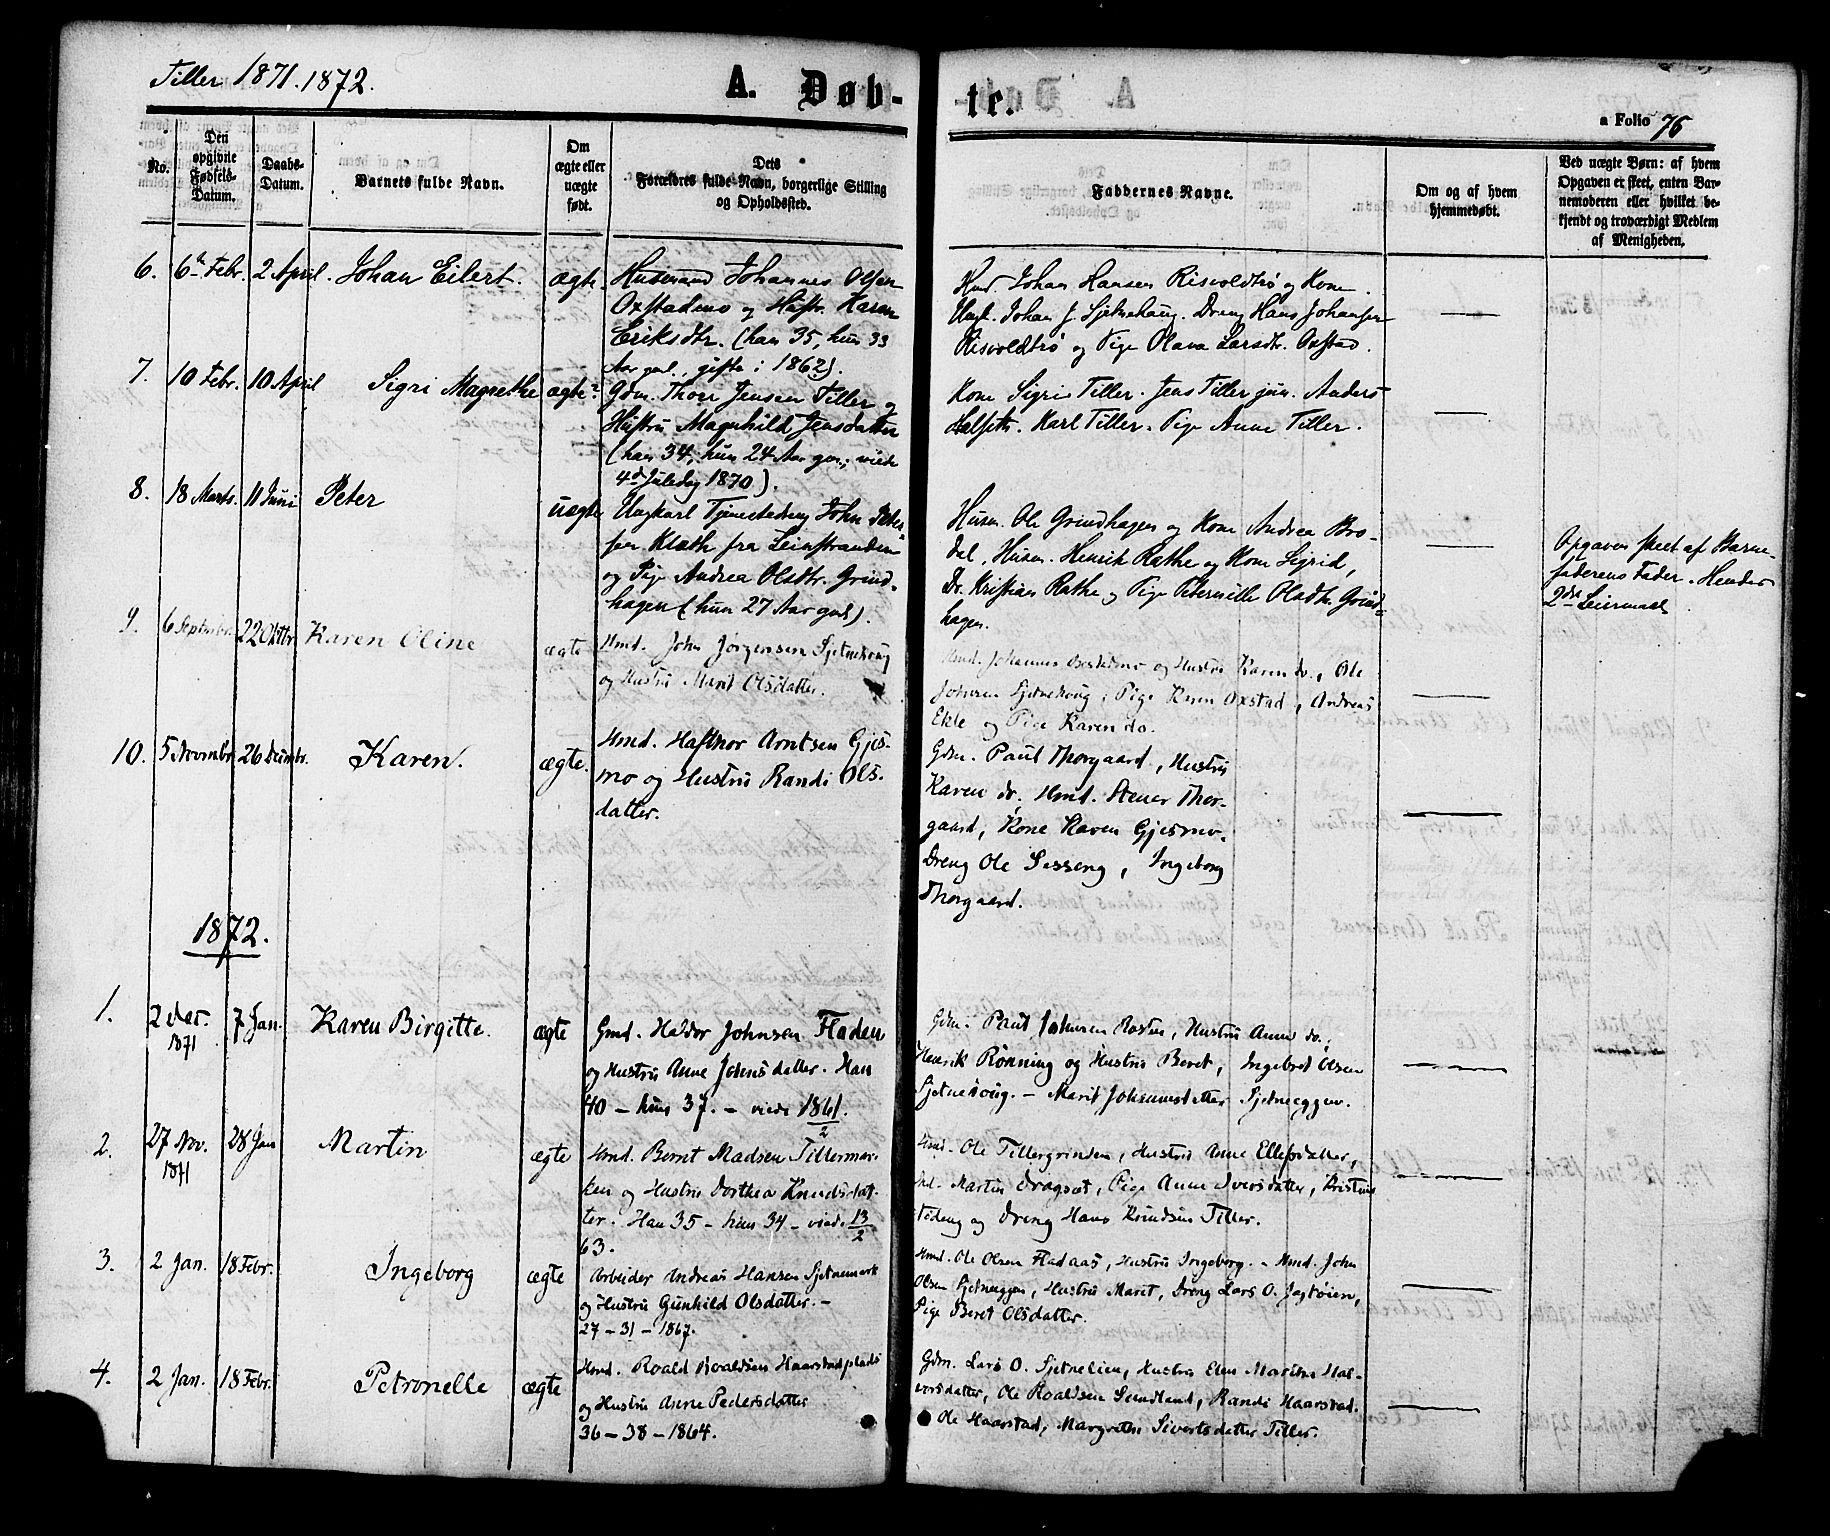 Tiller 1871. 1872.
A. Døb-
te.
a Folio 76
No.
Den opgivne Fødsels-Datum.
Daabs-Datum.
Barnets fulde Navn.
Om ægte eller uægte født.
Dets Forældres fulde Navn, borgerlige Stilling og Opholdssted.
Faddernes Navne.
Om og af hvem hjemmedøbt.
Ved uægte Børn: af hvem
Opgaven er skeet, enten Bar-
nemoderen eller hvilket be-
kjendt og troværdigt Medlem
af Menigheden.
6. 6te Febr. 2 April. Johan Eilert. ægte.
Husmand Johannes Olsen
Oxstadmo og Hustr. Karen
Eriksdtr. (han 35, hun 33
Aar gml., gifte i 1862).
Hus. Johan Hansen Risvoldtrø og Kone.
Ungk. Johan J. Sjetnehaug. Dreng Hans Johansen
Risvoldtrø og Pige Olava Larsdtr. Oxstad.
7. 10 Febr. 10 April Sigri Magrethe ægte
Gdm. Thoer Jensen Tiller og
Hustru Magnhild Jensdatter
(han 34, hun 24 Aar gm; viede
4d Juledag 1870).
Kone Sigri Tiller. Jens Tiller jun. Anders
Halseth. Karl Tiller. Pige Anne Tiller.
8. 18 Marts. 11 Juni Peter uægte
Ungkarl Tjenestedreng John Peter-
sen Klæth fra Leinstranden
og Pige Andrea Olsdtr. Grind-
hagen (hun 27 Aar gml).
Husm. Ole Grindhagen og Kone Andrea Bro-
dal. Husm. Henrik Rathe og Kone Sigrid,
Dr. Kristian Rathe og Pige Peternille Olsdtr. Grind-
hagen.
Opgaven skeet af Barne-
faderens Fader. Hendes
2det Leiermaal
9. 6 Septembr. 22 Oktbr. Karen Oline ægte
Hmd. John Jørgensen Sjetnehaug
og Hustru Marit Olsdatter.
Hmd. Johannes Oxstadmo og Hustru Karen do., Ole
Johnsen Sjetnehaug, Pige Karen Oxstad, Andreas
Ekle og Pige Karen do.
10. 5 Novembr. 26 Decembr. Karen. ægte.
Hmd. Haftnor Arntsen Gjes-
mo og Hustru Randi Ols-
datter.
Gdm. Paul Thorgaard, Hustru
Karen do, Hmd. Stener Thor-
gaard, Kone Karen Gjesmo.
Dreng Ole Sesseng, Ingeborg
Thorgaard.
1872.
1. 2 Dec. 1871 7 Jan. Karen Birgitte. ægte
Gmd. Haldor Johnsen Fladen
og Hustru Anne Johnsdatter. Han
40 - hun 37. - viede 1861.
2
Gdm. Paul Johnsen Rosten, Hustru Anne do.,
Henrik Rønning og Hustru Beret, Ingebret Olsen
Sjetnehaug. - Marit Johannesdatter Sjetneeggen.
2. 27 Nov. 1871 28 Jan Martin ægte
Hmd. Bernt Madsen Tillermar-
ken og Hustru Dorthea Knudsdat-
ter. Han 35 - hun 34 - viede 13/2
63.
Hmd. Ole Tillergrinden, Hustru Anne Ellefsdatter,
Martin Dragset, Pige Anne Iversdatter, Kristine
og Dreng Hans Knudsen Tiller.
3. 2 Jan. 18 Febr. Ingeborg ægte
Arbeider Andreas Hansen Sjetnemark
og Hustru Gunhild Olsdatter. -
27 - 31 - 1867.
Hmd. Ole Olsen Fladaas, Hustru Ingeborg. - Hmd. John
Olsen Sjetneeggen, Hustru Maret, Dreng Lars O. Jagtøien,
Pige Beret Olsdatter.
4. 2 Jan. 18 Febr. Petronelle ægte
Hmd. Roald Roaldsen Haarstadplads
og Hustru Anne Pedersdatter
36 - 38 - 1864.
Gdm. Lars O. Sjetnelien, Hustru Elen Martha Hal-
vorsdatter, Ole Roaldsen Sundland, Randi Haarstad.
Ole Haarstad, Margrethe Sivertsdatter Tiller.